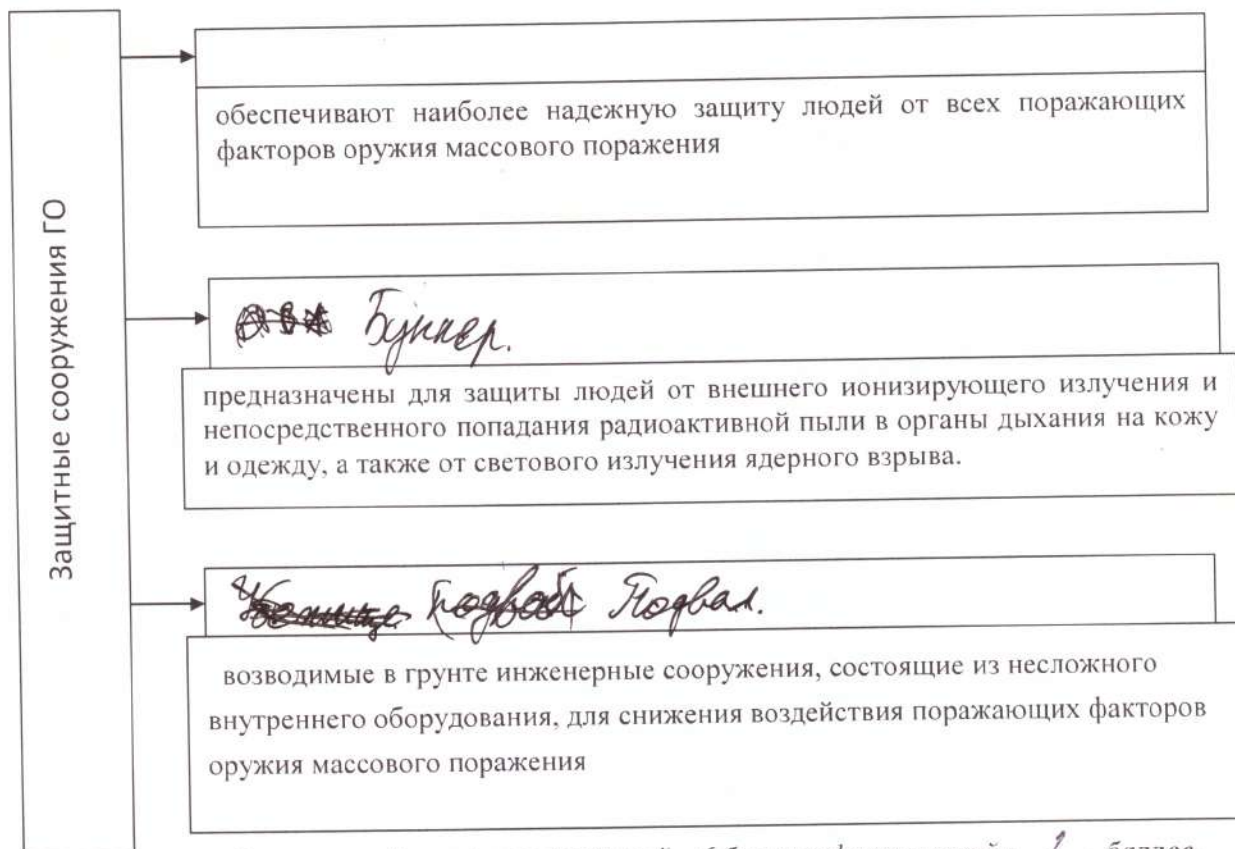 Защитные сооружения ГО
обеспечивают наиболее надежную защиту людей от всех поражающих
факторов оружия массового поражения
Бункер.
предназначены для защиты людей от внешнего ионизирующего излучения и
непосредственного попадания радиоактивной пыли в органы дыхания на кожу
и одежду, а также от светового излучения ядерного взрыва.
Убежище Подвал.
возводимые в грунте инженерные сооружения, состоящие из несложного
внутреннего оборудования, для снижения воздействия поражающих факторов
оружия массового поражения